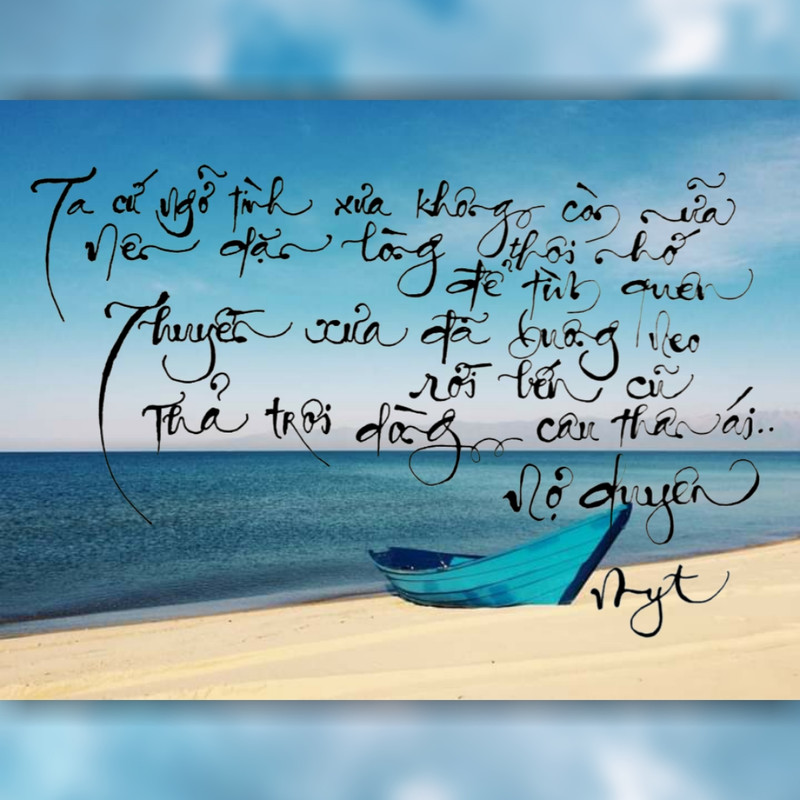 Ta cứ ngỡ tình xưa không còn nữa
Nên dặn lòng thôi nhớ
để tình quên
Thuyền xưa đã buông neo
rời bến cũ
Thả trôi dòng câu thân ái..
Nợ duyên
Nyt